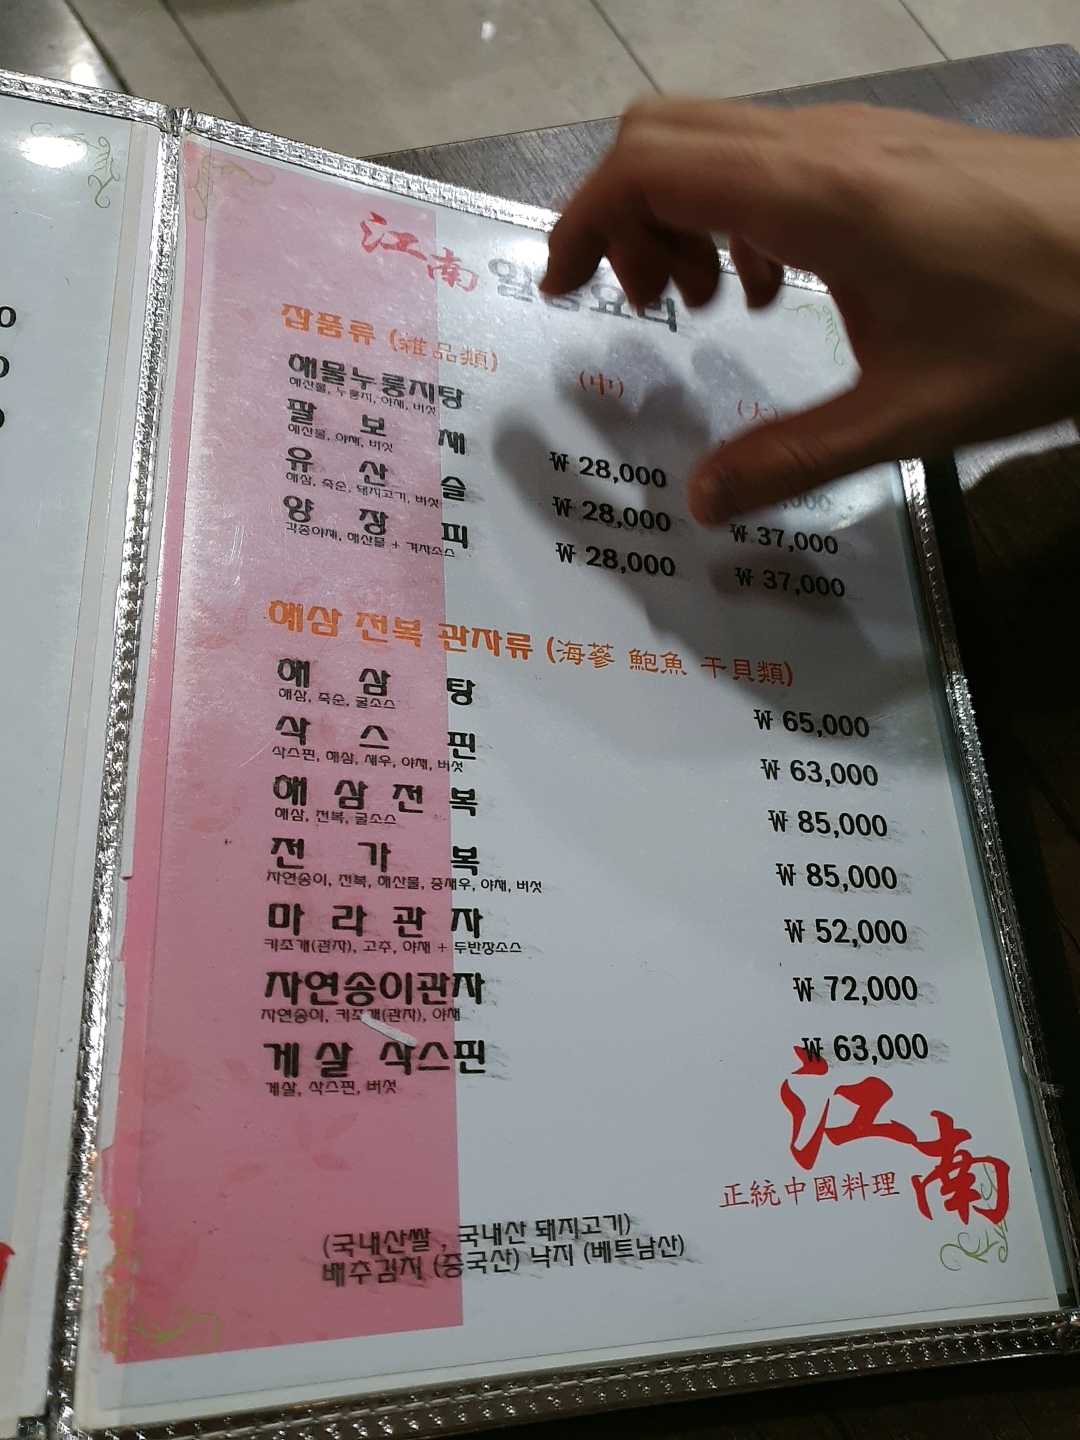 江南 일품요리
잡품류 (雜品類)
(中) (大)
해물누룽지탕
해산물, 누룽지, 야채, 버섯
팔 보 채 ₩ 28,000
해산물, 야채, 버섯
유 산 슬 ₩ 28,000 ₩ 37,000
해삼, 죽순, 돼지고기, 버섯
양 장 피 ₩ 28,000 ₩ 37,000
각종야채, 해산물 + 겨자소스
해삼 전복 관자류 (海蔘 鮑魚 干貝類)
해 삼 탕 ₩ 65,000
해삼, 죽순, 굴소스
삭 스 핀 ₩ 63,000
삭스핀, 해삼, 새우, 야채, 버섯
해 삼 전 복 ₩ 85,000
해삼, 전복, 굴소스
전 가 복 ₩ 85,000
자연송이, 전복, 해산물, 중새우, 야채, 버섯
마 라 관 자 ₩ 52,000
키조개(관자), 고추, 야채 + 두반장소스
자연송이관자 ₩ 72,000
자연송이, 키조개(관자), 야채
게 살 삭스핀 ₩ 63,000
게살, 삭스핀, 버섯
江南
正統中國料理
(국내산쌀 , 국내산 돼지고기)
배추김치 (중국산) 낙지 (베트남산)